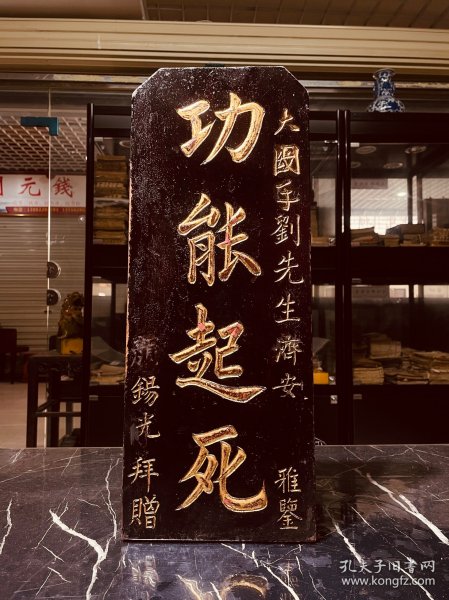 大國手劉先生濟安 雅鑒
功能起死
錫光拜贈
元錢
孔夫子旧书网
www.kongfz.com